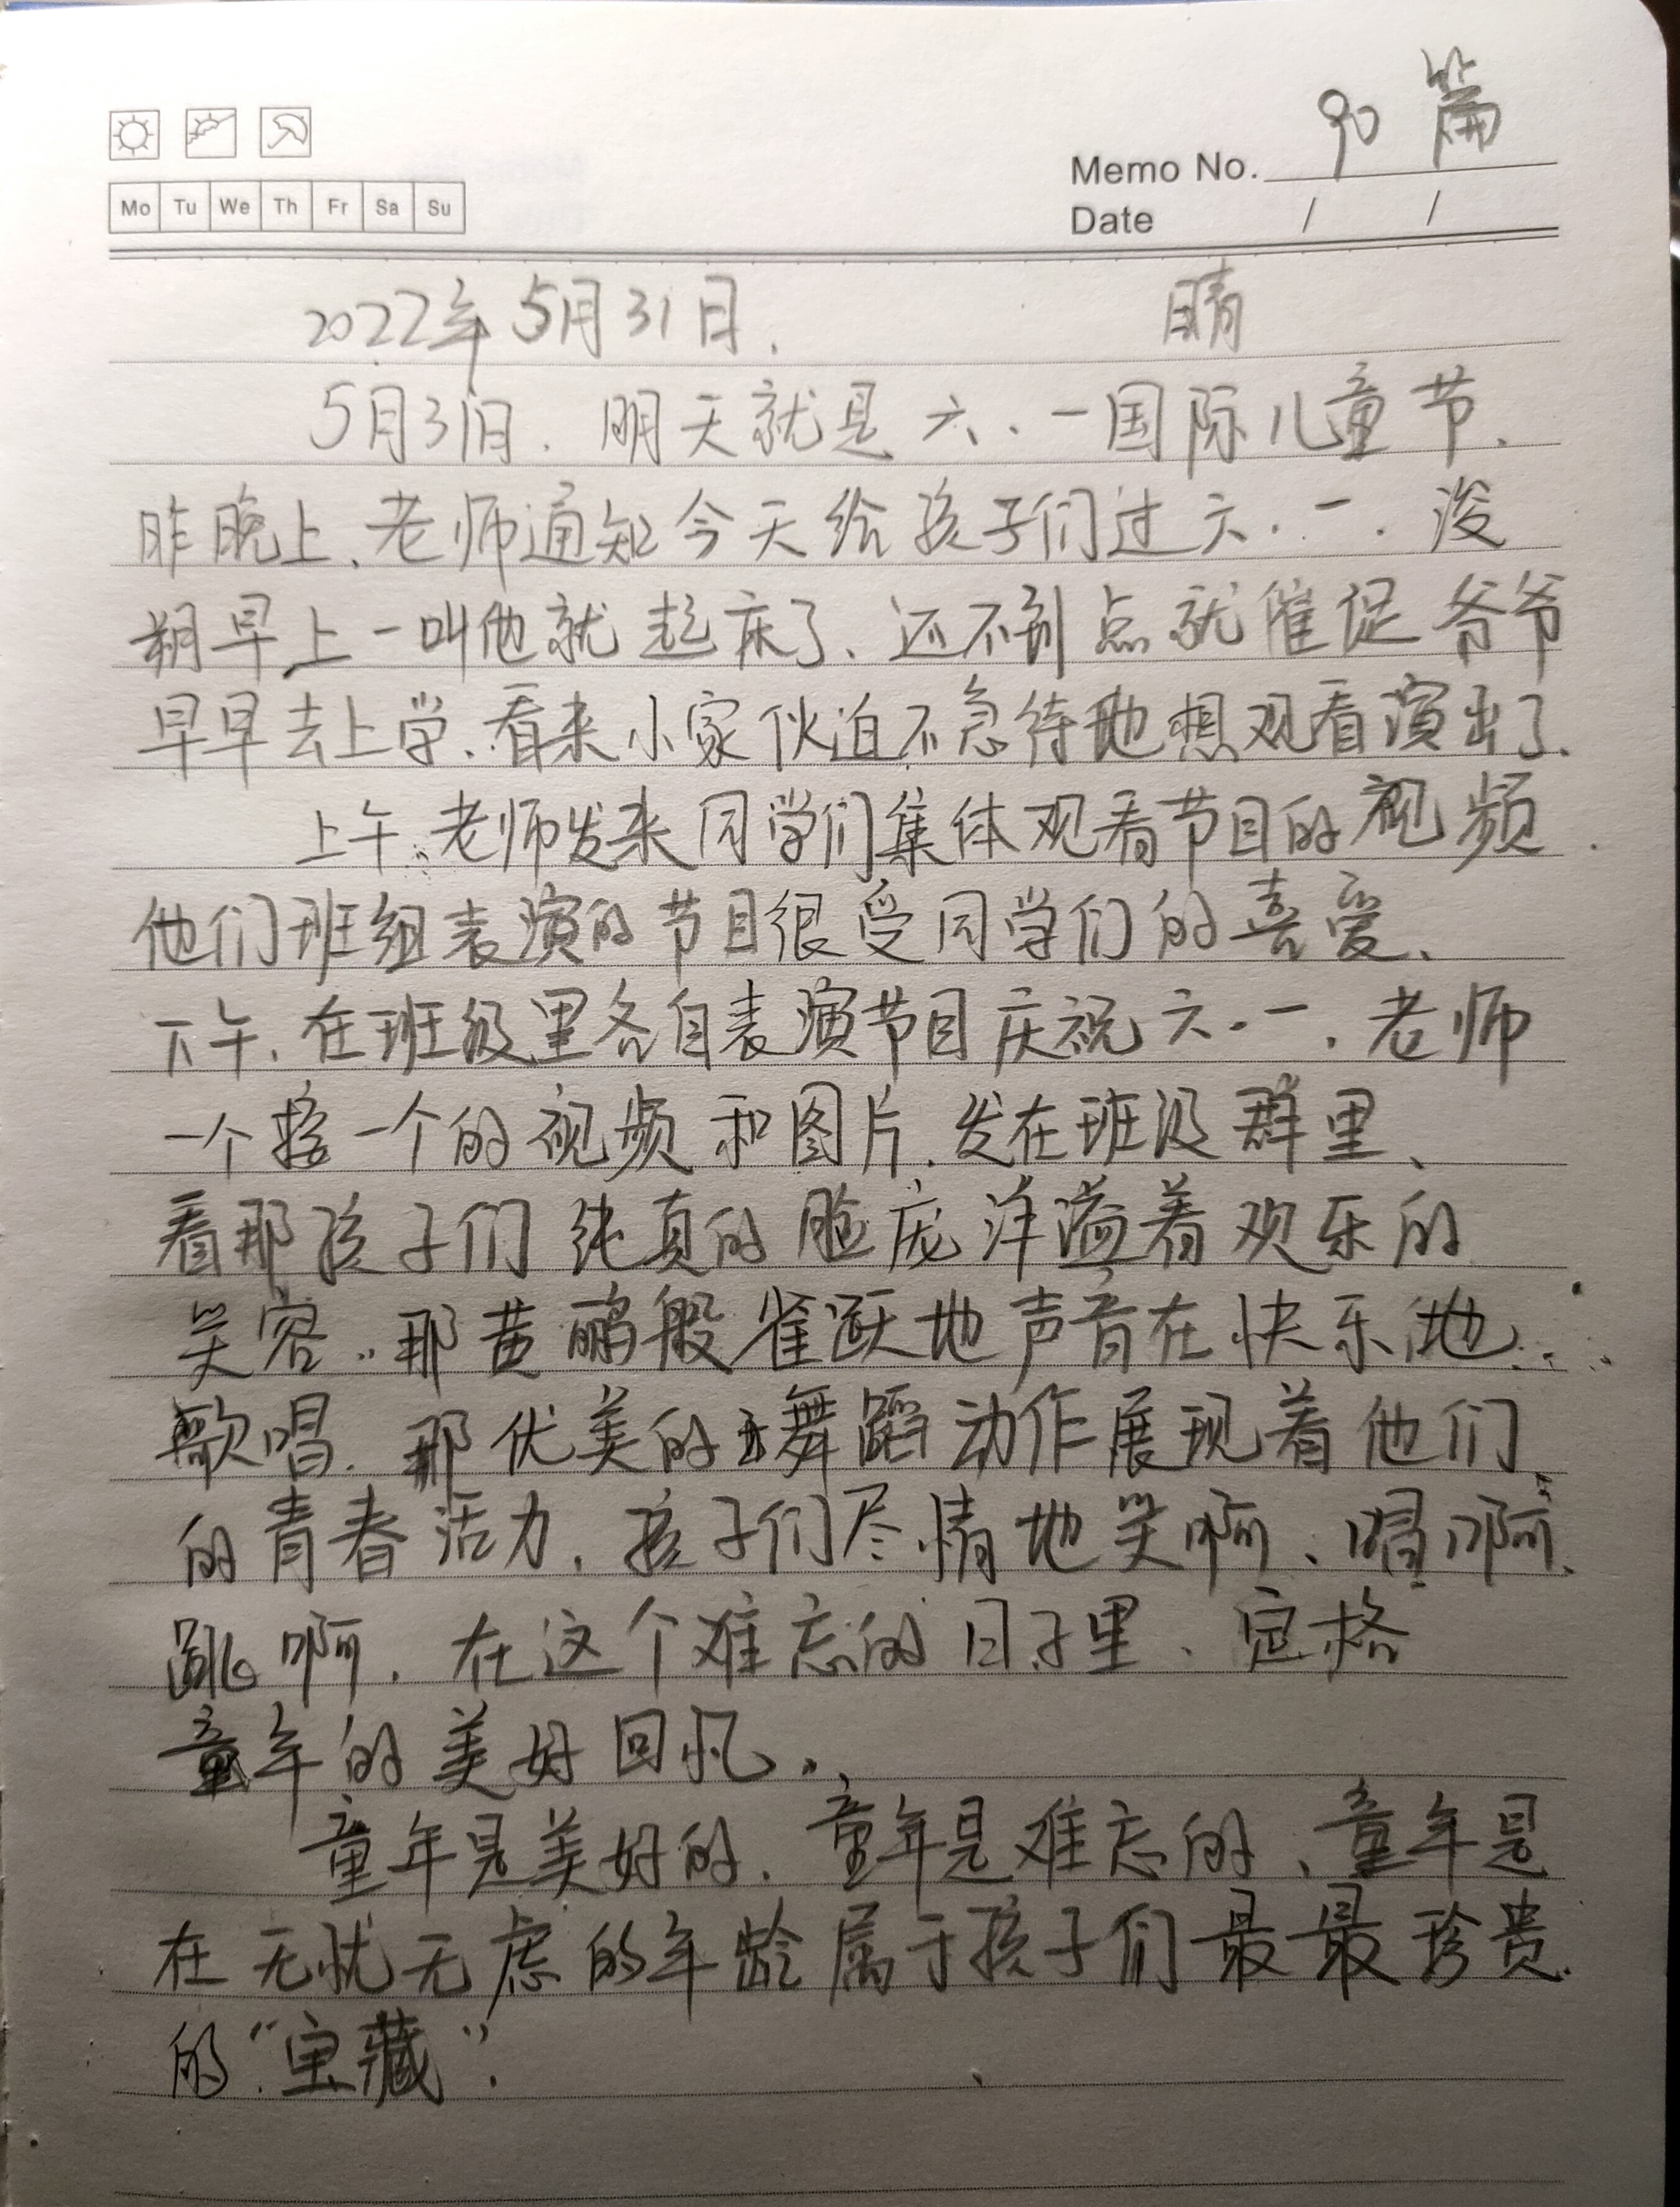 90 篇
Memo No.
Mo Tu We Th Fr Sa Su
Date / /
2022年5月31日. 晴
5月31日. 明天就是六.一国际儿童节.
昨晚上.老师通知今天给孩子们过六.一.浚
朔早上一叫他就起床了.还不到点就催促爷爷
早早去上学.看来小家伙迫不急待地想观看演出了.
上午.老师发来同学们集体观看节目的视频.
他们班组表演的节目很受同学们的喜爱.
下午.在班级里各自表演节目庆祝六.一.老师
一个接一个的视频和图片.发在班级群里.
看那孩子们纯真的脸庞洋溢着欢乐的
笑容..那黄鹂般雀跃地声音在快乐地
歌唱.那优美的舞蹈动作展现着他们
的青春活力.孩子们尽情地笑啊.唱啊.
跳啊.在这个难忘的日子里.定格
童年的美好回忆.
童年是美好的.童年是难忘的.童年是
在无忧无虑的年龄属于孩子们最最珍贵
的“宝藏”.